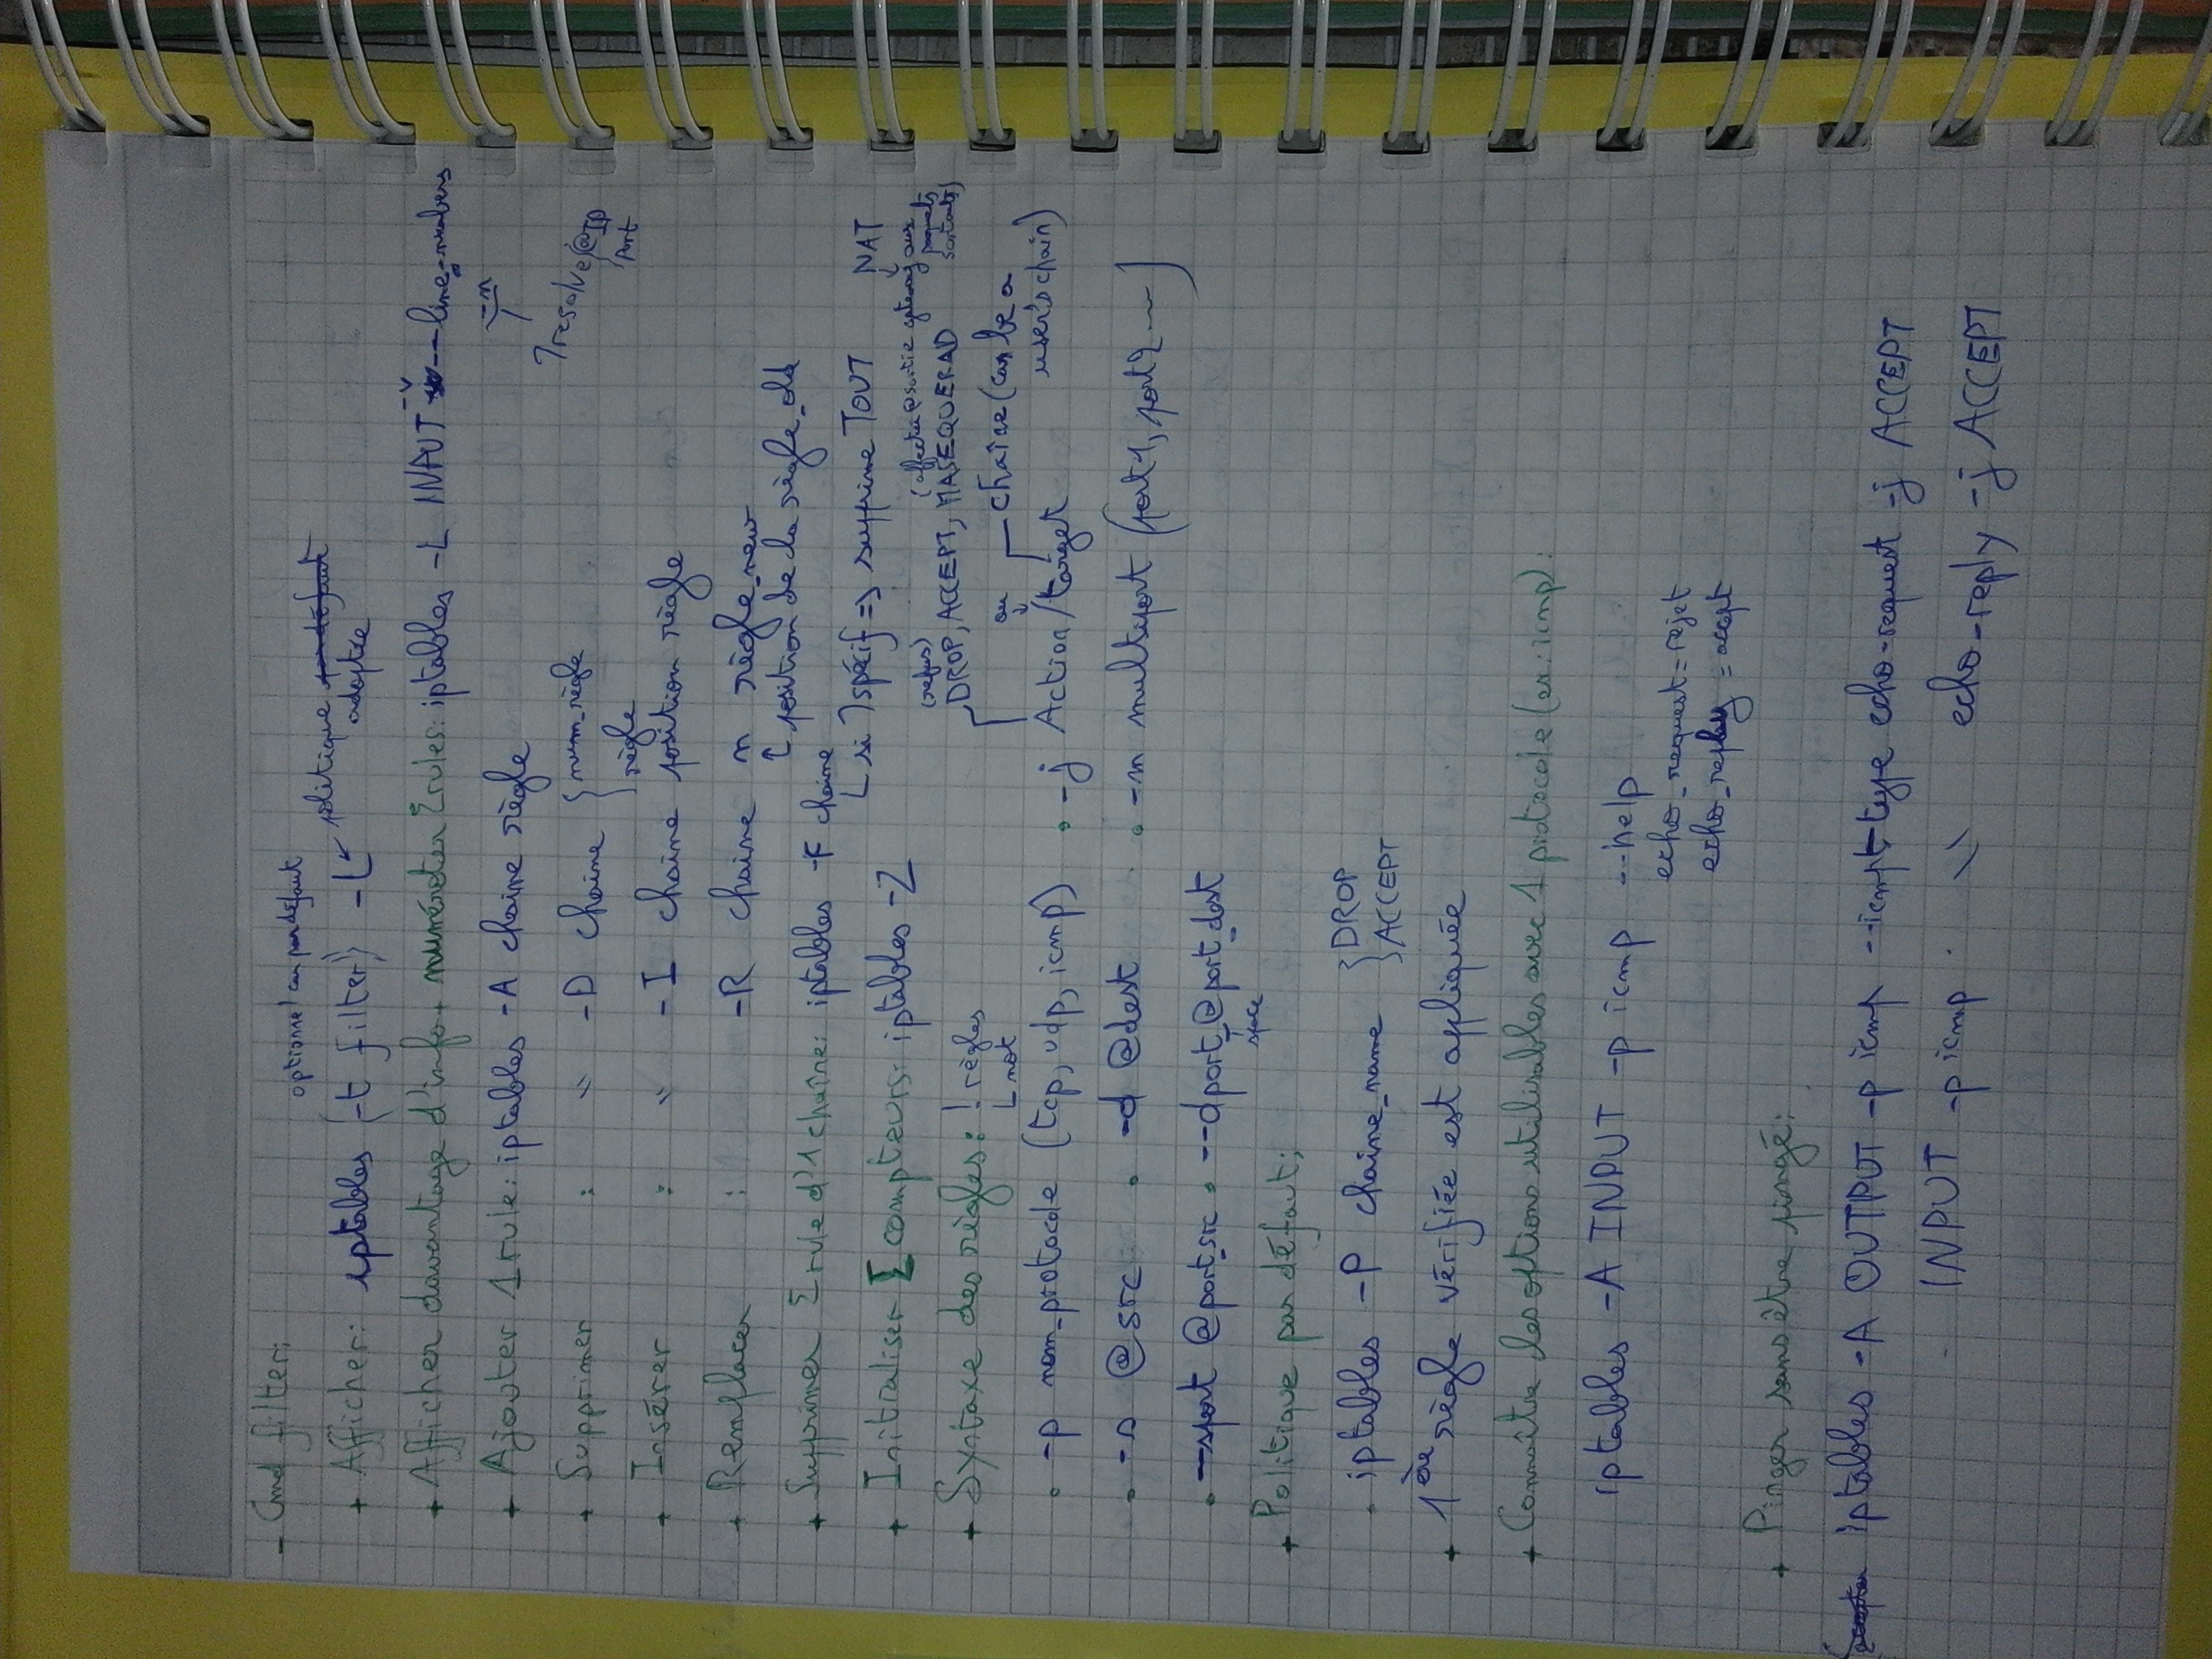 - Cmd filter:
optionnel car par défaut
+ Afficher: iptables (-t filter) -L politique par défaut adoptée
+ Afficher davantage d'info + numéroter Σ rules: iptables -L INPUT -v --line-numbers
-n
+ Ajouter 1 rule: iptables -A chaine règle
ꓶ resolve { @IP
Port
+ Supprimer : " -D chaine { num_règle
règle
+ Insérer : " -I chaine position règle
+ Remplacer : -R chaine n règle_new
position de la règle_old
+ Supprimer Σ rule d'1 chaîne: iptables -F chaine
si ꓶ spécif => supprime TOUT
NAT
+ Initialiser Σ compteurs: iptables -Z
(refus) (affecter @sortie gateway aux paquets sortants)
DROP, ACCEPT, MASEQUERAD
+ Syntaxe des règles: ! règles
not
ou
chaîne (can be a user's chain)
• -p nom_protocole (tcp, udp, icmp) • -j Action/target
• -s @src • -d @dest • -m multiport (port1, port2 ...)
• --sport @port_src • --dport @port_dest
space
+ Politique par défaut:
iptables -P chaine_name { DROP
ACCEPT
+ 1ère règle vérifiée est appliquée
+ Connaître les options utilisables avec 1 protocole (ex: icmp):
iptables -A INPUT -p icmp --help
echo_request = rejet
echo_reply = accept
+ Pinger sans être pingé:
iptables -A OUTPUT -p icmp --icmp-type echo-request -j ACCEPT
INPUT -p icmp " echo-reply -j ACCEPT